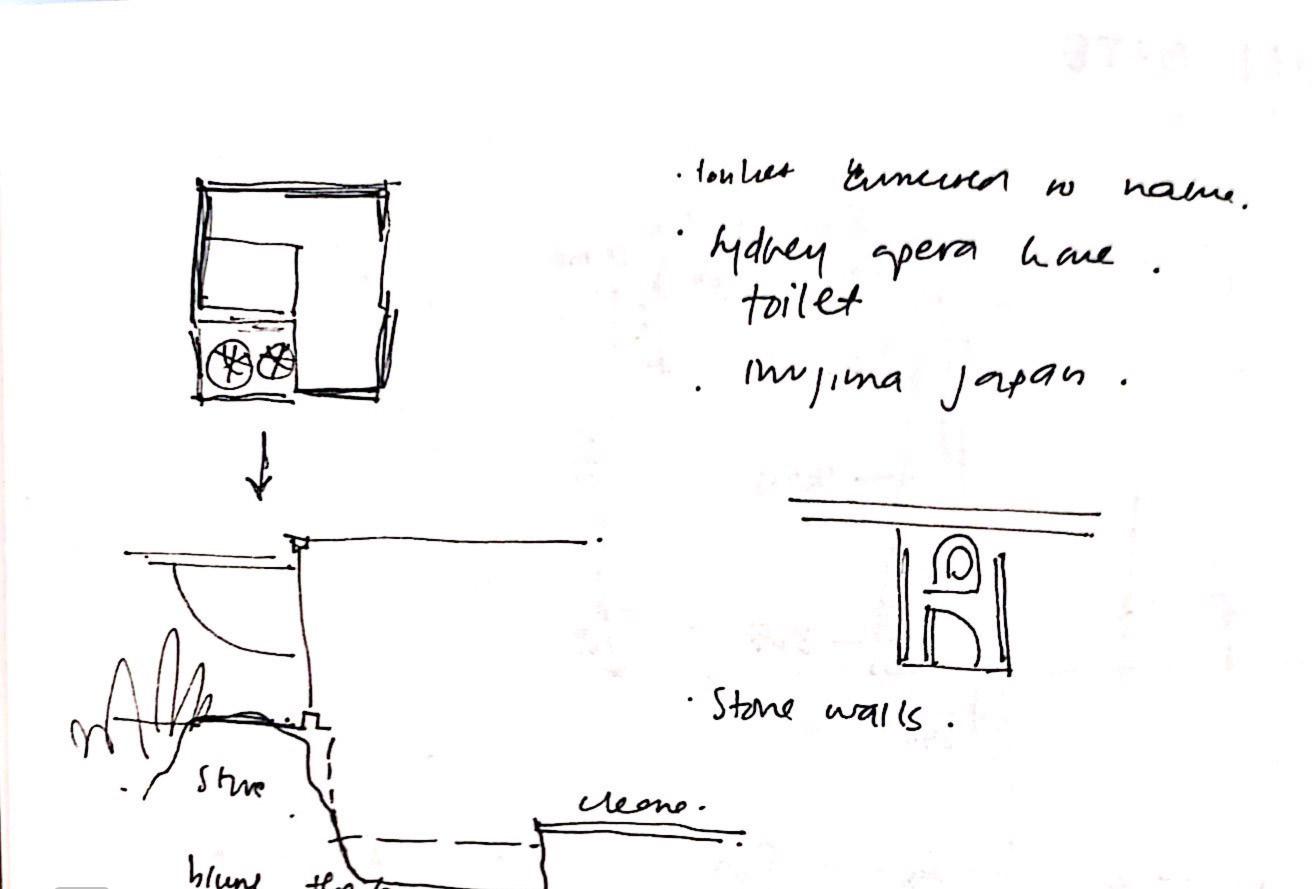 . toilet connected to nature.
. Sydney opera house.
toilet
. Inujima Japan.
. Stone walls.
Stone